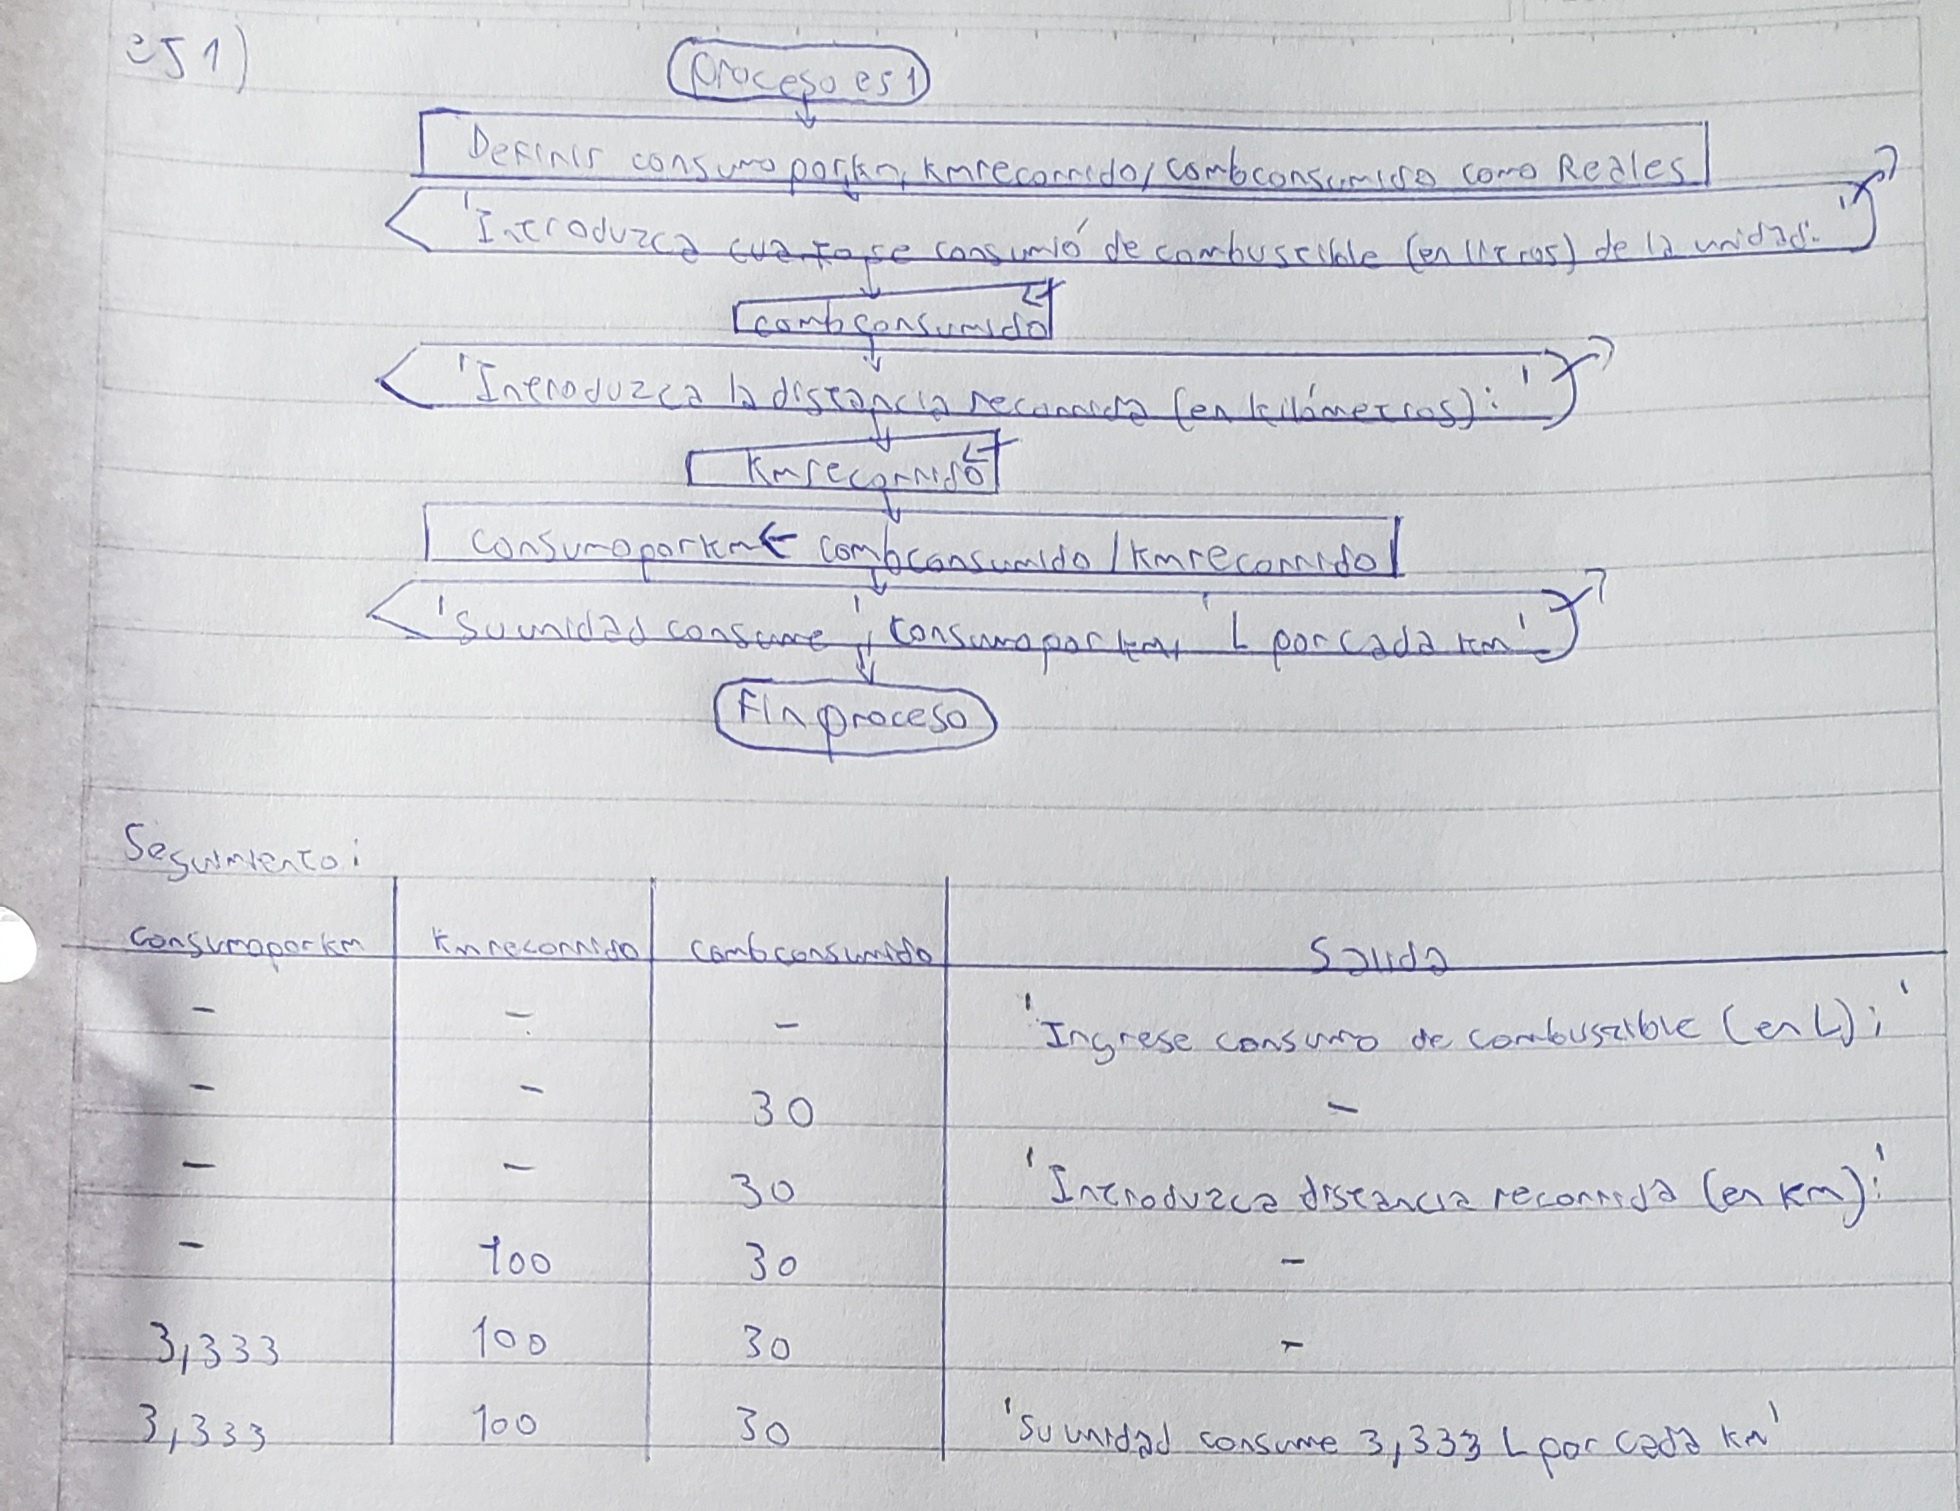 ej1)
proceso ej1
Definir consumoporkm, kmrecorrido, combconsumido como Reales
'Introduzca cuanto se consumió de combustible (en litros) de la unidad:'
combconsumido
'Introduzca la distancia recorrida (en kilómetros):'
kmrecorrido
consumoporkm ← combconsumido / kmrecorrido
'Su unidad consume ', consumoporkm, ' L por cada km'
Finproceso
Seguimiento:
consumoporkm kmrecorrido combconsumido Salida
- - - 'Ingrese consumo de combustible (en L):'
- - 30 -
- - 30 'Introduzca distancia recorrida (en km):'
- 100 30 -
3,333 100 30 -
3,333 100 30 'Su unidad consume 3,333 L por cada km'